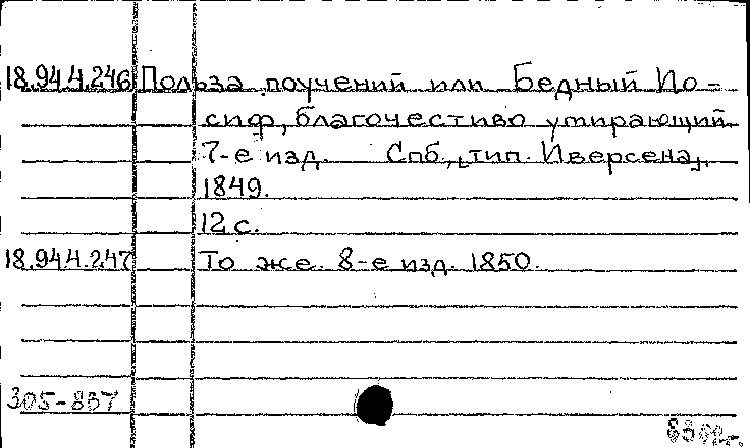 18.94.4.246 Польза поучений или Бедный Ио-
сиф, благочестиво умирающий.
7-е изд. Спб., [тип. Иверсена],
1849.
12 с.
18.94.4.247 То же. 8-е изд. 1850.
305-857